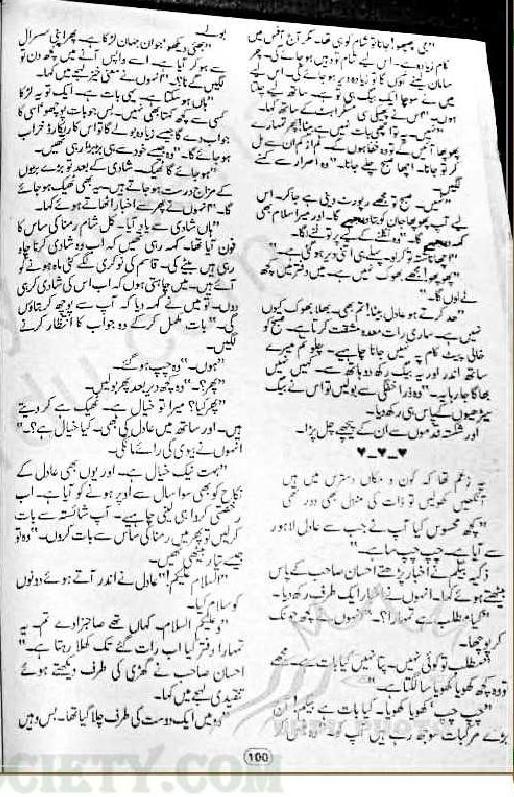 "جی پھپھو! جانا تو شام کو ہی تھا۔ مگر آج آفس میں
کام زیادہ ہے۔ اس لیے شام تو وہیں ہو جائے گی۔ پھر
سامان لینے آؤں گا تو زیادہ دیر ہو جائے گی۔ اس لیے
میں نے سوچا ایک بیگ ہی تو ہے۔ ساتھ لیے جاتا
ہوں۔" اس نے پھیکی سی مسکراہٹ کے ساتھ کہا۔
"نہیں۔ یہ تو اچھی بات نہیں ہے بیٹا! پھر تمہارے
پھوپھا آئیں گے تو وہ خفا ہوں گے۔ کم از کم ان سے مل
کر تو جانا۔ اچھا صبح چلے جانا۔" وہ اصرار سے کہنے
لگیں۔
"نہیں۔ صبح تو مجھے رپورٹ دینی ہے جا کر۔ اس
لیے آپ پھوپھا جان کو بتا دیجیے گا۔ اور میرا سلام بھی
کہہ دیجیے گا۔" وہ نکلنے کے لیے پر تولنے لگا۔
"اچھا ناشتہ تو کر لو۔ پہلے ہی اتنی دیر ہو گئی ہے۔"
"پھپھو! مجھے بھوک نہیں ہے۔ میں دفتر میں کچھ
لے لوں گا۔"
"حد کرتے ہو عادل بیٹا! تم بھی۔ بھلا بھوک کیوں
نہیں ہے۔ ساری رات معدہ مشقت کرتا ہے۔ صبح کو
خالی پیٹ کام پہ نہیں جانا چاہیے۔ چلو تم میرے
ساتھ اندر اور یہ بیگ رکھ دو ہاتھ سے۔ کہیں نہیں
بھاگا جا رہا یہ۔" وہ ذرا خفگی سے بولیں تو اس نے بیگ
سیڑھیوں کے پاس ہی رکھ دیا۔
اور شکستہ قدموں سے ان کے پیچھے چل پڑا۔
♥ ـ ♥ ـ ♥
یہ زعم تھا کہ کون و مکاں دسترس میں ہیں
آنکھیں کھولیں تو ذات کی منزل بھی دور تھی
"کچھ محسوس کیا آپ نے جب سے عادل لاہور
سے آیا ہے۔ چپ چپ سا ہے۔"
ذکیہ بیگم نے اخبار پڑھتے احسان صاحب کے پاس
بیٹھتے ہوئے کہا۔ انہوں نے اخبار ایک طرف رکھ دیا۔
"کیا مطلب ہے تمہارا؟" انہوں نے کچھ چونک
کر پوچھا۔
"مطلب تو کوئی نہیں۔ پتا نہیں کیا بات ہے۔ مجھے
تو وہ کچھ کھویا کھویا سا لگتا ہے۔"
"چپ چپ، کھویا کھویا۔ کیا بات ہے بیگم! ان
بڑے مرکبات سوجھ رہے ہیں آپ کو۔" وہ
بولے۔
"بھئی دیکھو، جوان جہان لڑکا ہے۔ پھر اپنی سسرال
سے ہو کر آیا ہے۔ اسے واپس آنے میں کچھ دن تو
لگیں گے نا؟" انہوں نے معنی خیز لہجے میں کہا۔
"ہاں ہو سکتا ہے۔ یہی بات ہے۔ ایک تو یہ لڑکا
کسی سے کچھ کہتا بھی نہیں۔ بس جو بات پوچھو، اسی کا
جواب دے گا جیسے زیادہ بولے گا تو اس کا ریکارڈ خراب
ہو جائے گا۔" وہ جیسے خود سے ہی بڑبڑا رہی تھیں۔
"ہو جائے گا ٹھیک۔ شادی کے بعد تو بڑے بڑوں
کے مزاج درست ہو جاتے ہیں۔ یہ بھی ٹھیک ہو جائے
گا۔" انہوں نے پھر سے اخبار اٹھاتے ہوئے کہا۔
"ہاں شادی سے یاد آیا۔ کل شام رمنا کی ساس کا
فون آیا تھا۔ کہہ رہی تھیں کہ اب وہ شادی کرنا چاہ
رہی ہیں بیٹے کی۔ قاسم کی نوکری لگے کئی ماہ ہونے کو
آئے ہیں۔ میں چاہتی ہوں کہ اب اس کی شادی کر ہی
دوں۔ تو میں نے کہہ دیا کہ آپ سے پوچھ کر بتاؤں
گی۔" بات مکمل کر کے وہ جواب کا انتظار کرنے
لگیں۔
"ہوں۔" وہ چپ ہو گئے۔
"پھر؟" وہ کچھ دیر بعد پھر بولیں۔
"پھر کیا؟ میرا تو خیال ہے۔ ٹھیک ہے کر دیتے
ہیں۔ اور ساتھ میں عادل کی بھی۔ کیا خیال ہے؟"
انہوں نے بیوی کی رائے مانگی۔
"بہت نیک خیال ہے۔ اور یوں بھی عادل کے
نکاح کو بھی سوا سال سے اوپر ہونے کو آیا ہے۔ اب
رخصتی کروا ہی لینی چاہیے۔ آپ شائستہ سے بات
کر لیں تو پھر میں رمنا کی ساس سے بات کروں۔" وہ تو
جیسے تیار بیٹھی تھیں۔
"السلام علیکم!" عادل نے اندر آتے ہوئے دونوں
کو سلام کیا۔
"وعلیکم السلام۔ کہاں تھے صاحبزادے تم۔ یہ
تمہارا دفتر کیا اب رات گئے تک کھلا رہتا ہے۔"
احسان صاحب نے گھڑی کی طرف دیکھتے ہوئے
تنقیدی لہجے میں کہا۔
"وہ میں ایک دوست کی طرف چلا گیا تھا۔ بس وہیں
100
CIETY.COM